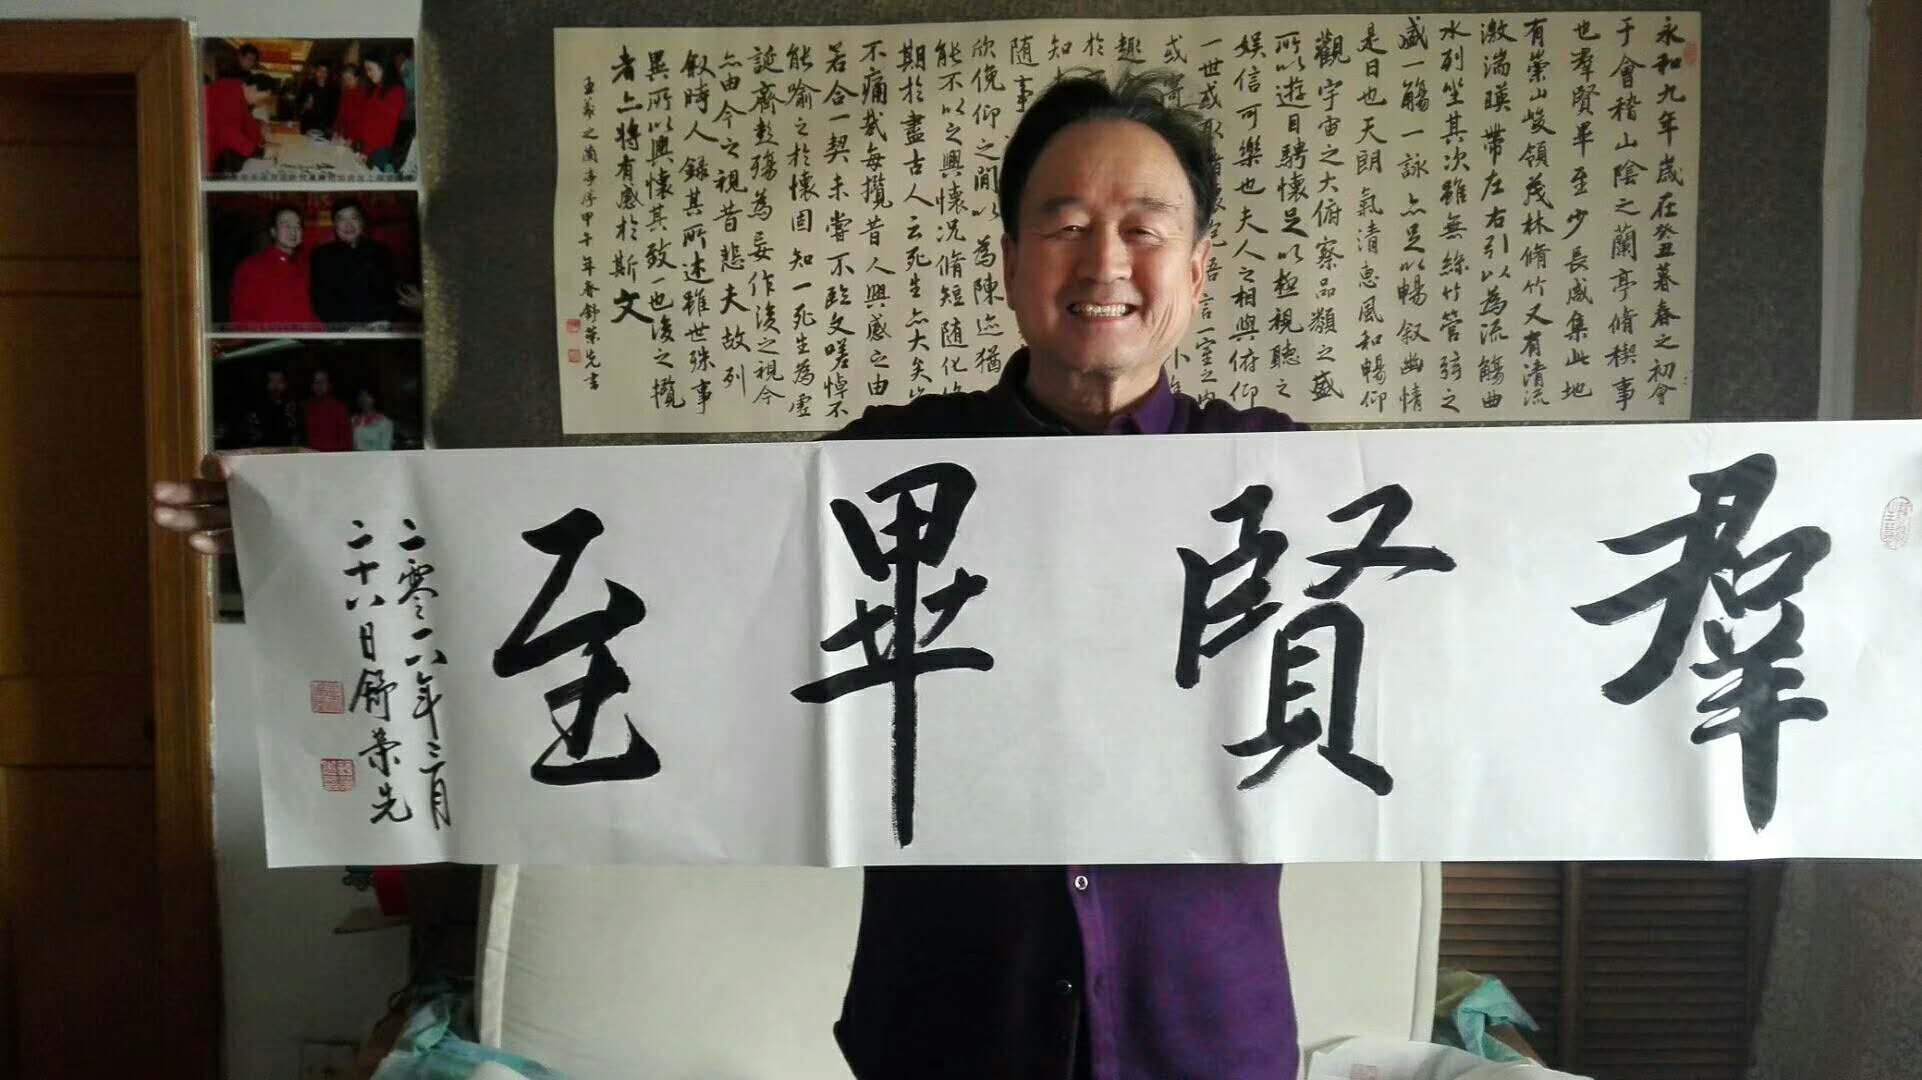 羣賢畢至
二零一八年三月
二十八日舒荣先
永和九年歲在癸丑暮春之初會
于會稽山陰之蘭亭脩稧事
也羣賢畢至少長咸集此地
有崇山峻領茂林脩竹又有清流
激湍暎帶左右引以為流觴曲
水列坐其次雖無絲竹管弦之
盛一觴一詠亦足以暢叙幽情
是日也天朗氣清惠風和暢仰
觀宇宙之大俯察品類之盛
所以遊目騁懷足以極視聽之
娱信可樂也夫人之相與俯仰
一世或取諸言一室之內
或寄
趣
於
知
随事
欣俛仰之間以為陳迹猶
能不以之興懷況脩短随化
期於盡古人云死生亦大矣
不痛哉每攬昔人興感之由
若合一契未嘗不臨文嗟悼不
能喻之於懷固知一死生為虛
誕齊彭殤為妄作後之視今
亦由今之視昔悲夫故列
叙時人錄其所述雖世殊事
異所以興懷其致一也後之攬
者亦將有感於斯文
王羲之蘭亭序甲午年春舒荣先書